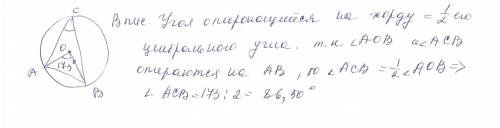 C
O
173°
A
B
Впис. Угол опирающийся на хорду = 1/2 его
центрального угла. т.к ∠AOB и ∠ACB
опираются на AB, то ∠ACB = 1/2 ∠AOB =>
∠ACB = 173 : 2 = 86,50°